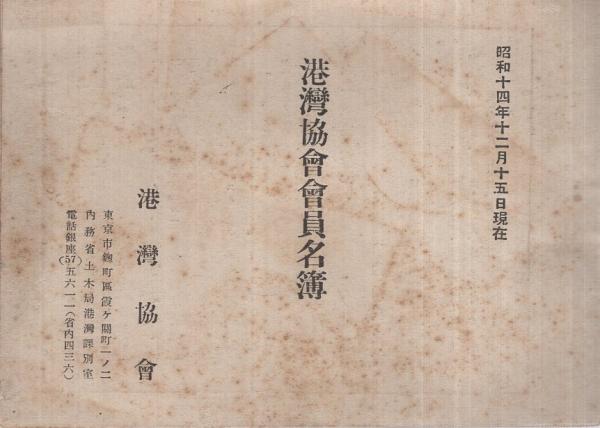 昭和十四年十二月十五日現在
港灣協會會員名簿
港灣協會
東京市麹町區霞ヶ關町一ノ二
内務省土木局港灣課別室
電話銀座(57)五六一一(省内四三六)